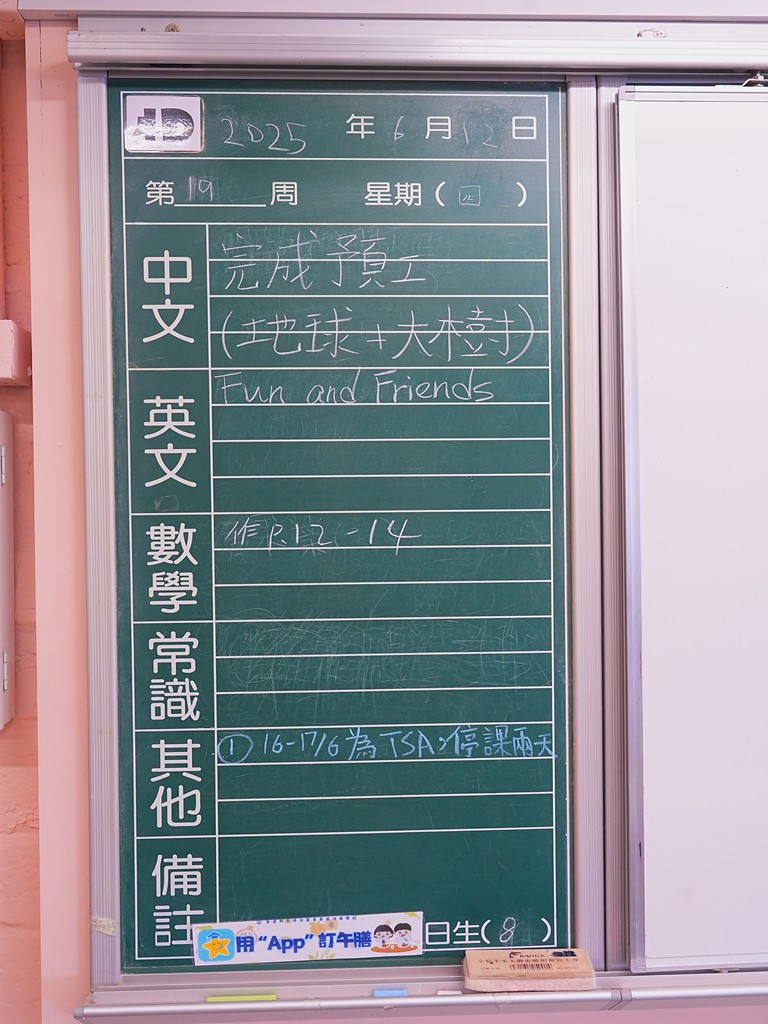 4D 2025 年 6 月 12 日
第 19 周 星期 ( 四 )
中文 完成預工
(地球+大樹)
英文 Fun and Friends
數學 作P.12-14
常識
其他 ① 16-17/6 為TSA,停課兩天
備註
用“App”訂午膳 日生( 8 )